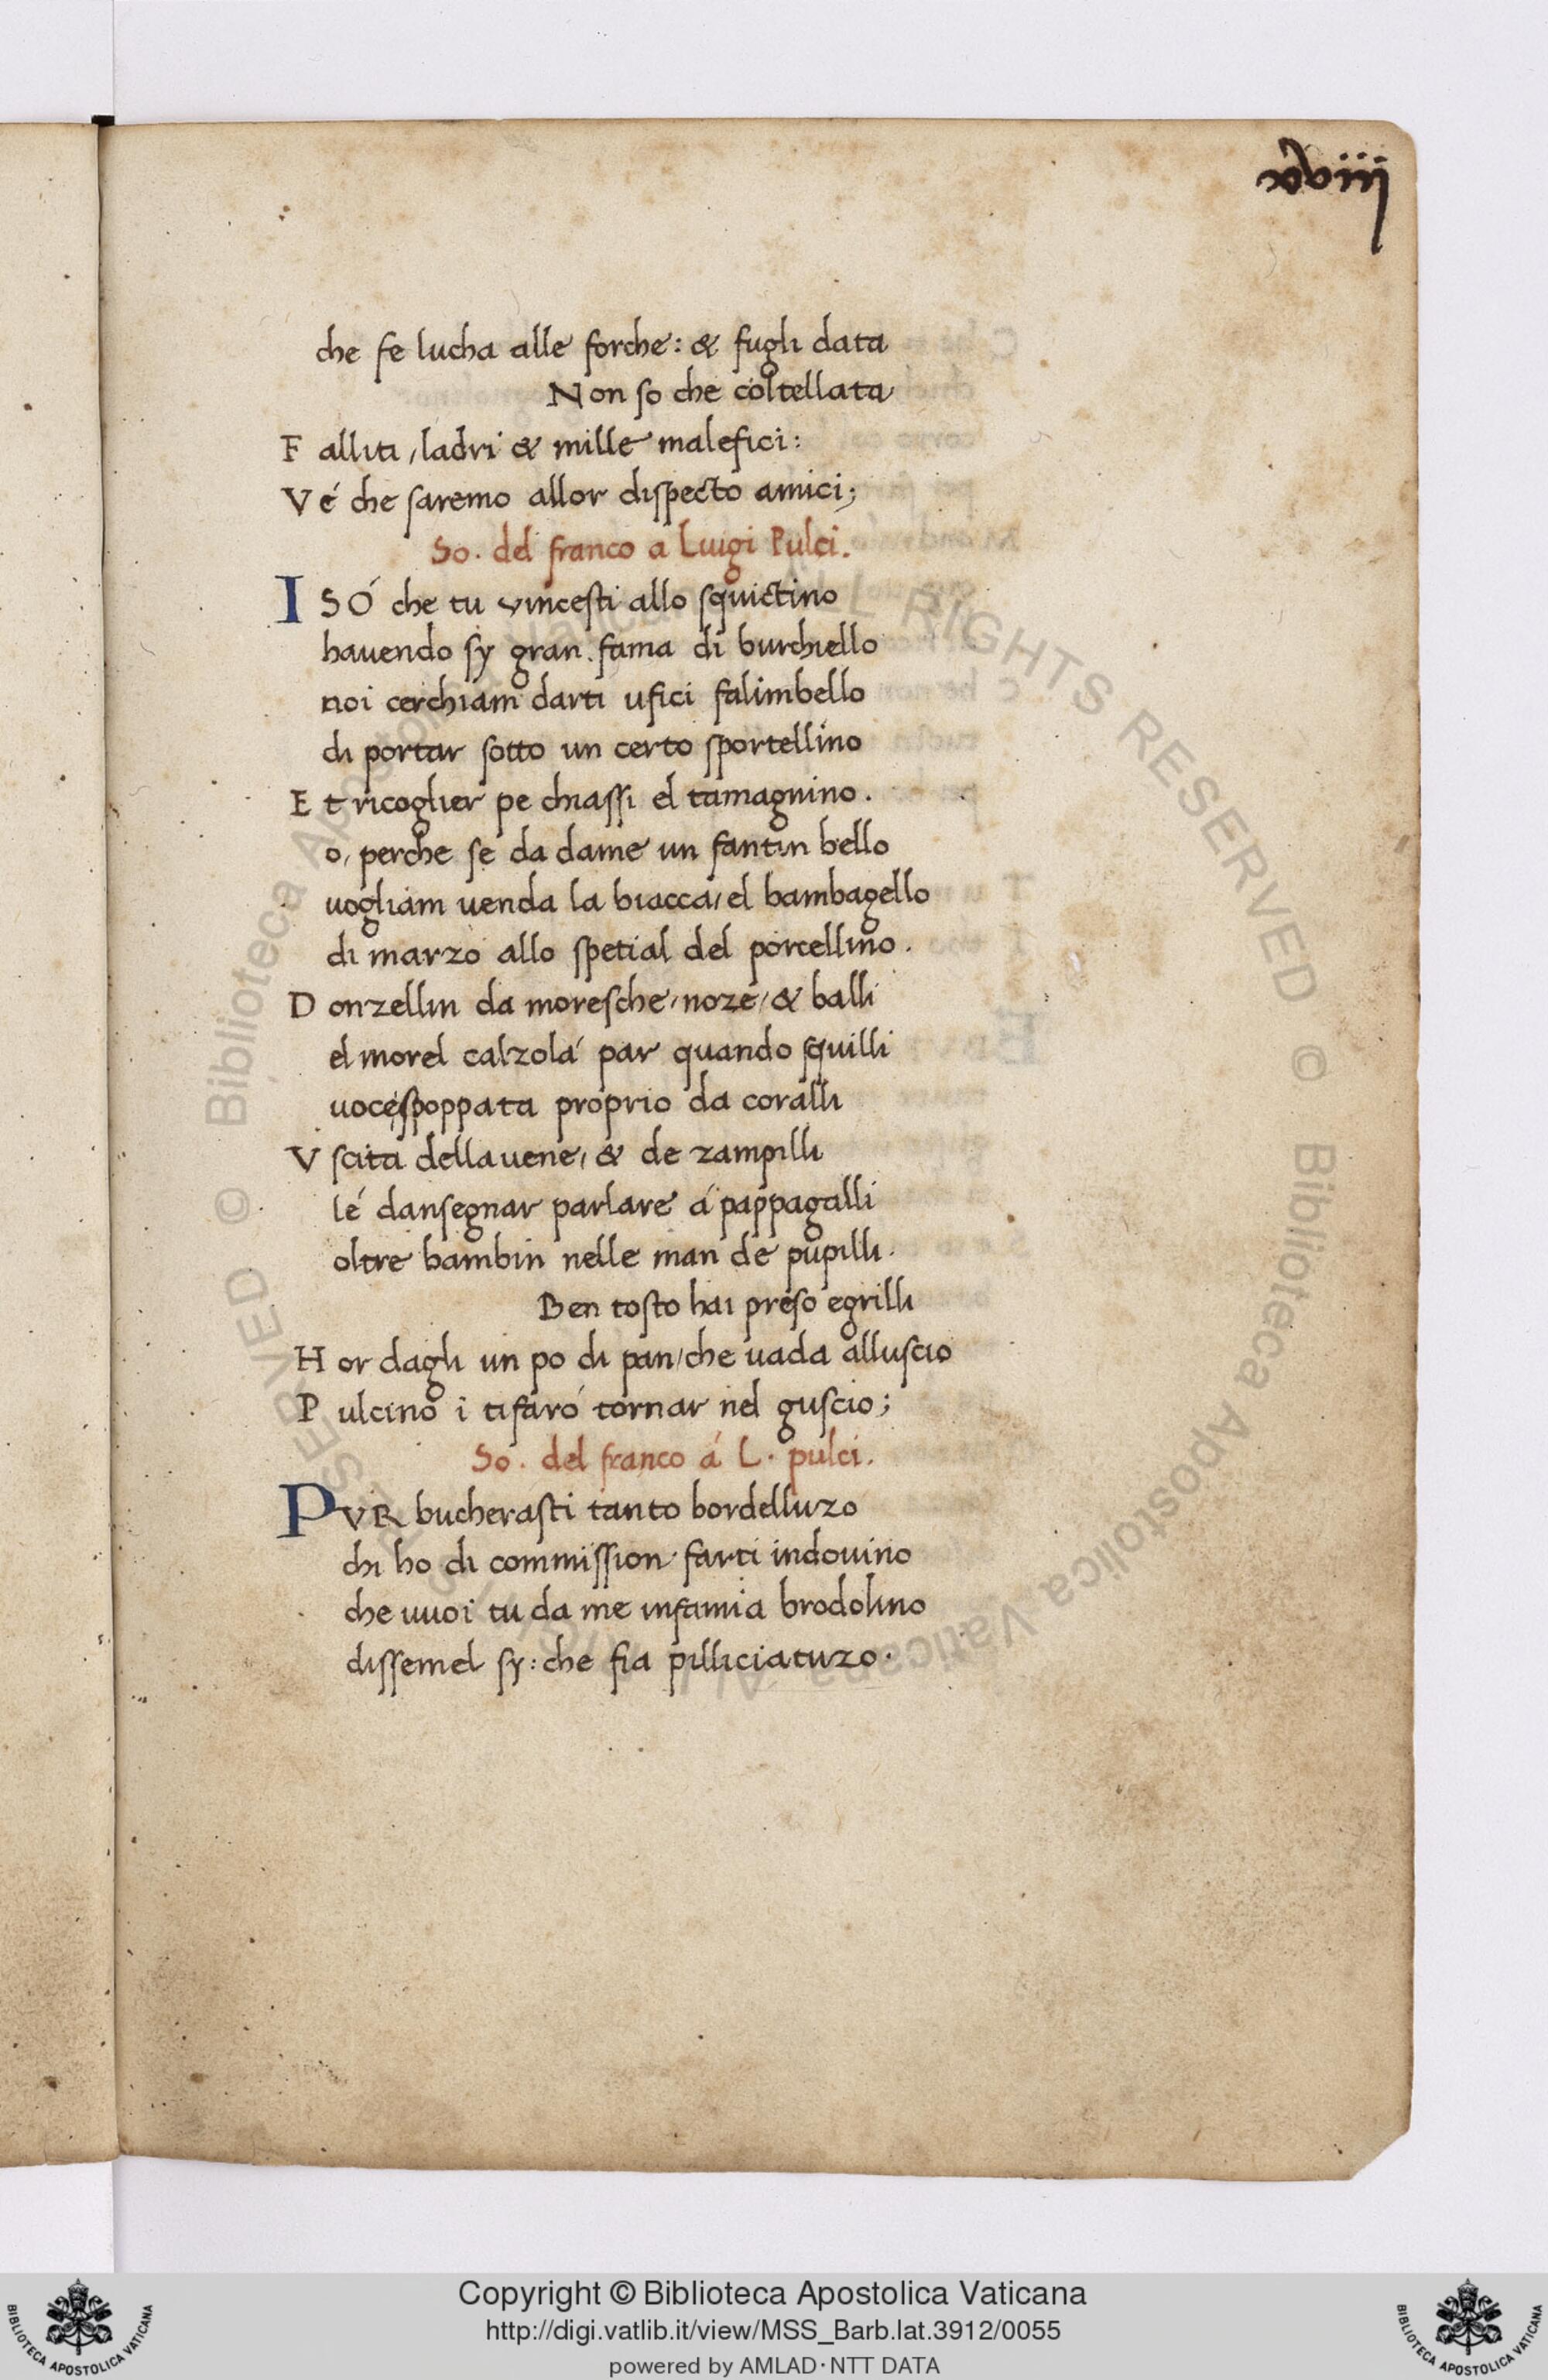 xlviiij
che fe lucha alle forche: & fugli data
Non so che coltellata
F alliti, ladri & mille malefici:
V é che saremo allor dispecto amici;
So. del franco a Luigi Pulci.
I SÓ che tu vincesti allo squictino
hauendo sy gran fama di burchiello
noi cerchiam darti ufici falimbello
di portar sotto un certo sportellino
E t ricoglier pe chiassi el tamagnino.
o, perche se da dame un fantin bello
uogliam uenda la biacca, el bambagello
di marzo allo spetial del porcellino.
D onzellin da moresche, noze, & balli
el morel calzolá par quando squilli
uoce spoppata proprio da coralli
V scita della uene, & de zampilli
lé dansegnar parlare á pappagalli
oltre bambin nelle man de pupilli.
Ben tosto hai preso egrilli
H or dagli un po di pan, che uada alluscio
P ulcino i tifaró tornar nel guscio;
So. del franco á L. pulci.
PVR bucherasti tanto bordelluzo
chi ho di commission farti indouino
che uuoi tu da me infamia brodolino
dissemel sy: che fia pilliciatuzo.
© Biblioteca Apostolica Vaticana ALL RIGHTS RESERVED © Biblioteca Apostolica Vaticana ALL RIGHTS RESERVED
Copyright © Biblioteca Apostolica Vaticana
http://digi.vatlib.it/view/MSS_Barb.lat.3912/0055
powered by AMLAD·NTT DATA
BIBLIOTECA APOSTOLICA VATICANA
BIBLIOTECA APOSTOLICA VATICANA